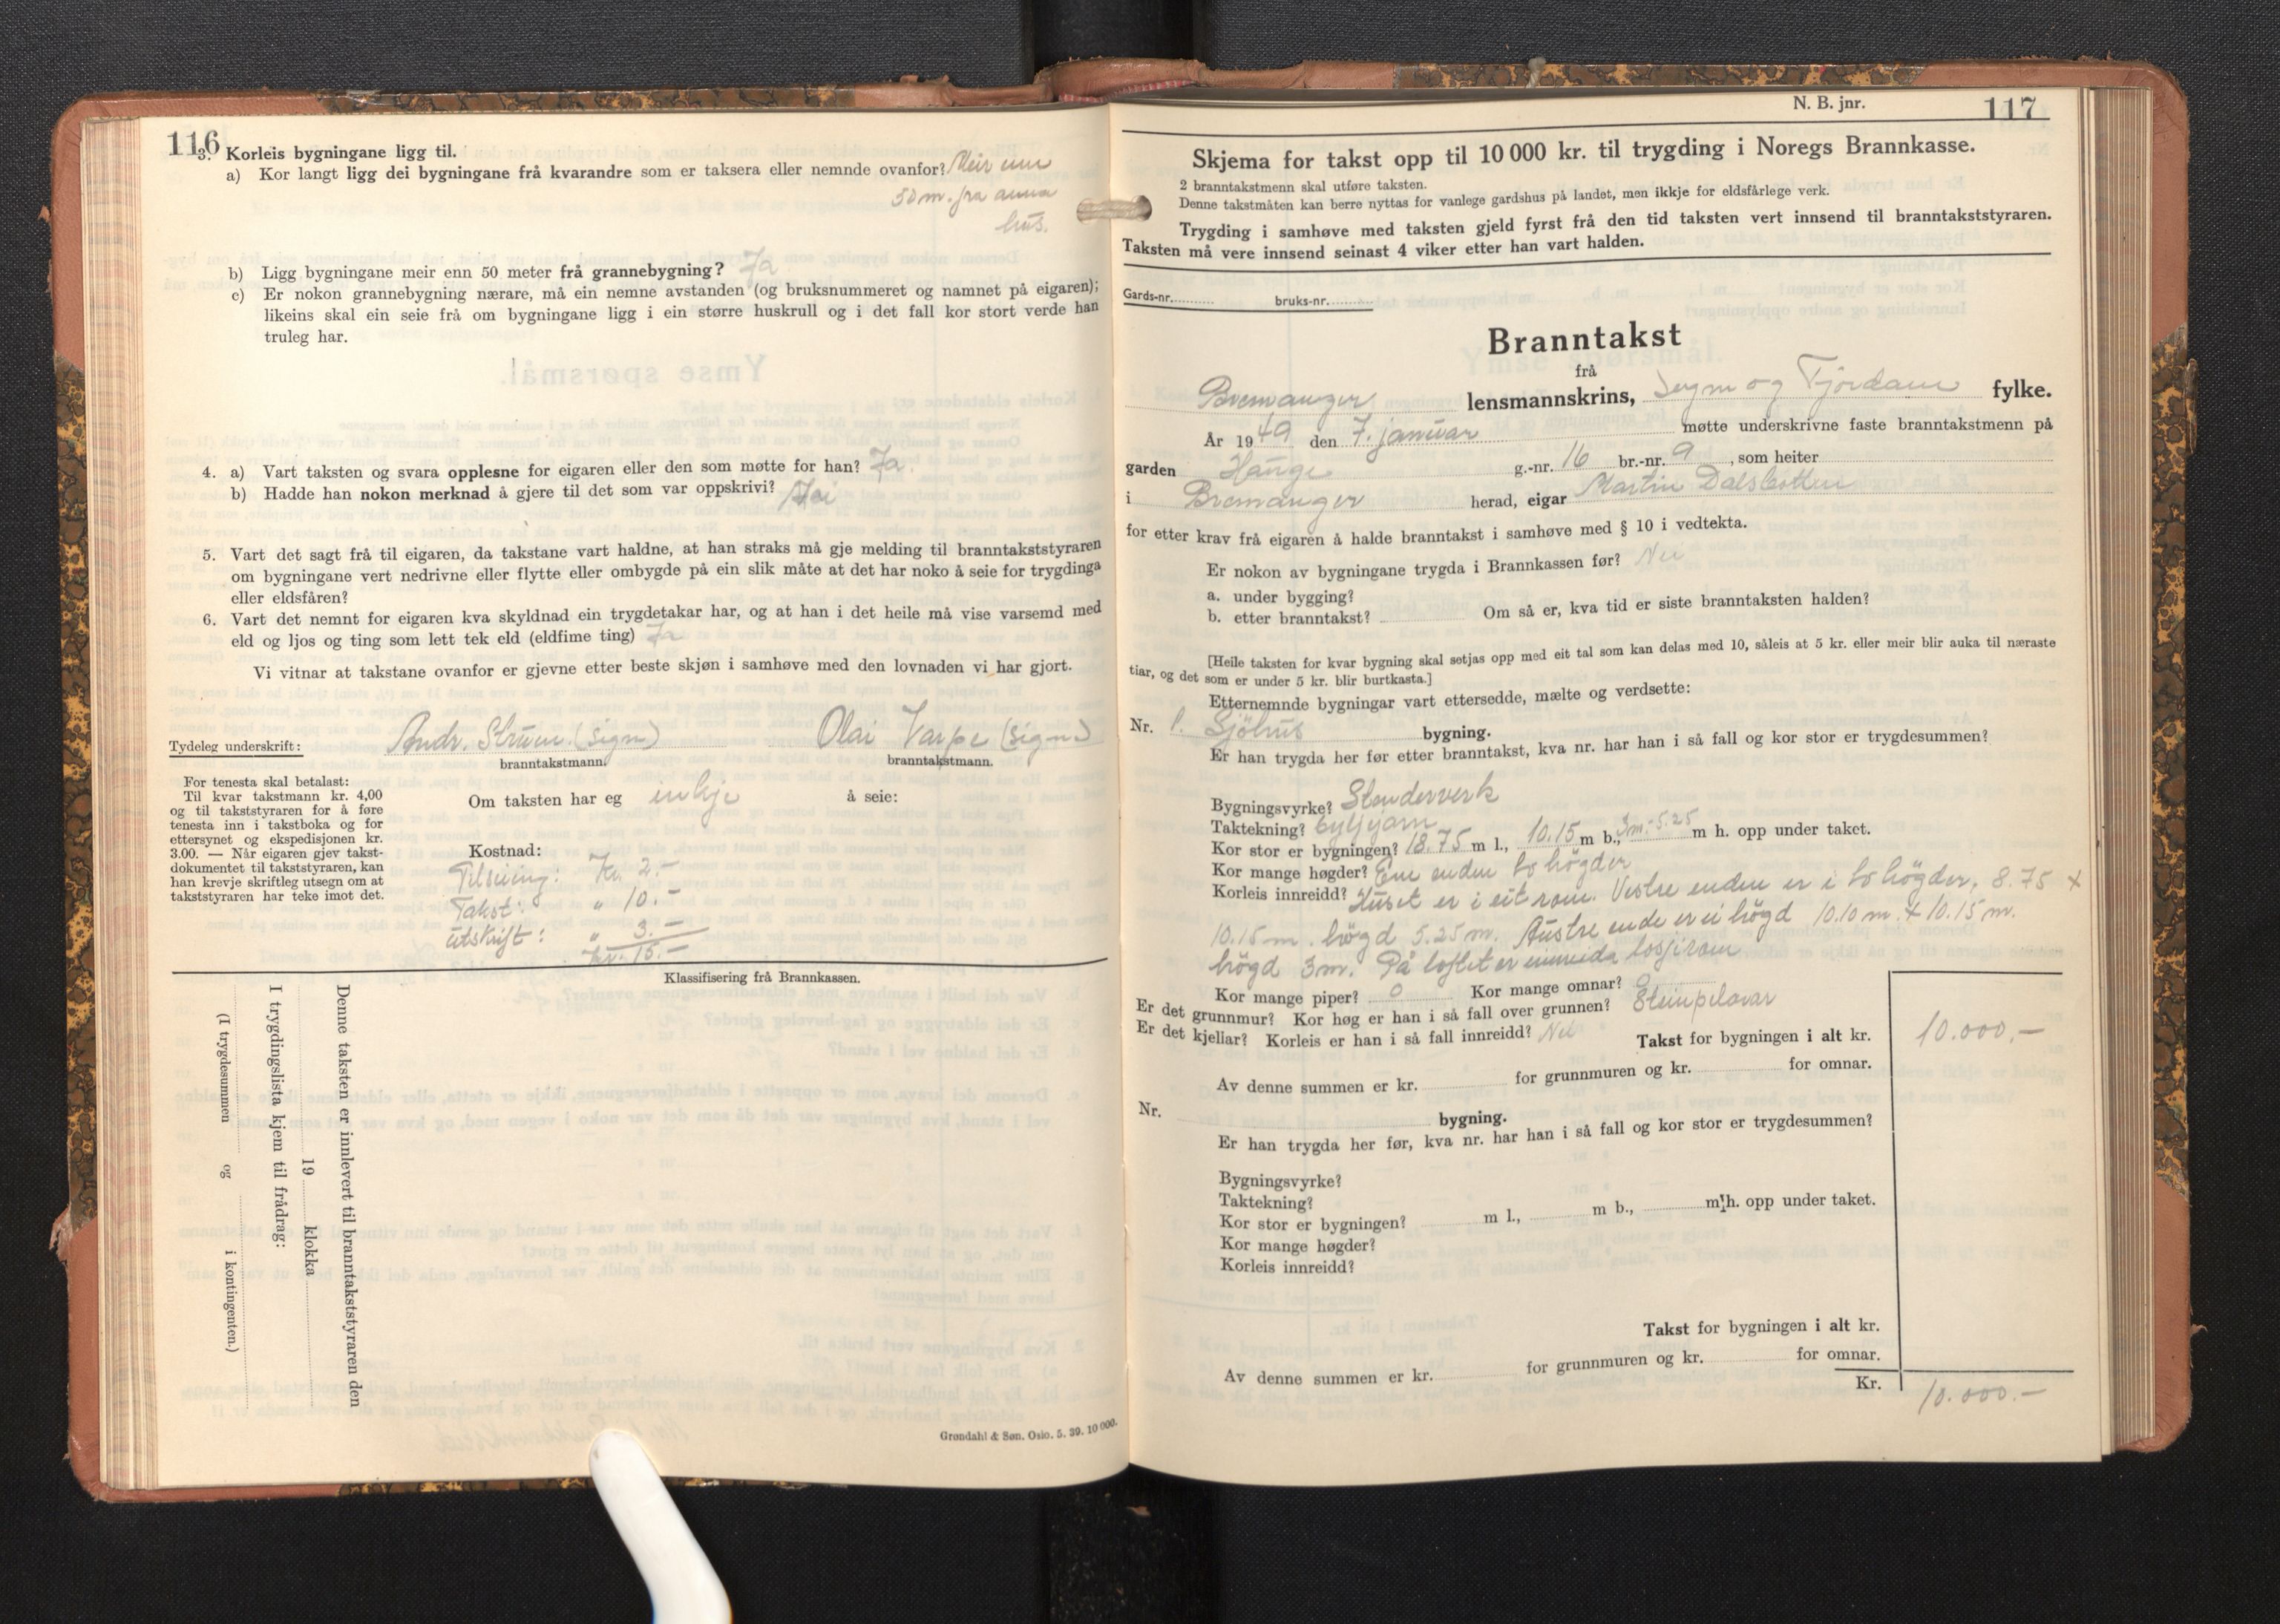 116
3. Korleis bygningane ligg til.
a) Kor langt ligg dei bygningane frå kvarandre som er taksera eller nemnde ovanfor? Meir enn
50 m. fra anna
hus.
b) Ligg bygningane meir enn 50 meter frå grannebygning? Ja
c) Er nokon grannebygning nærare, må ein nemne avstanden (og bruksnummeret og namnet på eigaren);
likeins skal ein seie frå om bygningane ligg i ein større huskrull og i det fall kor stort verde han
truleg har.
4. a) Vart taksten og svara opplesne for eigaren eller den som møtte for han? Ja.
b) Hadde han nokon merknad å gjere til det som var oppskrivi? Nei
5. Vart det sagt frå til eigaren, da takstane vart haldne, at han straks må gje melding til branntakststyraren
om bygningane vert nedrivne eller flytte eller ombygde på ein slik måte at det har noko å seie for trygdinga
eller eldsfåren?
6. Vart det nemnt for eigaren kva skyldnad ein trygdetakar har, og at han i det heile må vise varsemd med
eld og ljos og ting som lett tek eld (eldfime ting) Ja
Vi vitnar at takstane ovanfor er gjevne etter beste skjøn i samhøve med den lovnaden vi har gjort.
Tydeleg underskrift: Andr. (sign) Olai Varpe (sign)
branntakstmann. branntakstmann.
For tenesta skal betalast:
Til kvar takstmann kr. 4,00
og til takststyraren for å føre
tenesta inn i takstboka og for
ettersynet og ekspedisjonen kr.
3.00. — Når eigaren gjev takst-
dokumentet til takststyraren, kan
han krevje skriftleg utsegn om at
takststyraren har teke imot det.
Om taksten har eg inkje å seie:
Kostnad:
Kr. 2.-
Takst: " 10.-
Utskrift: " 3.-
Kr. 15.-
Klassifisering frå Brannkassen.
Denne taksten er innlevert til branntakststyraren den
19 klokka
I trygdingslista kjem til frådrag:
(I trygdesummen og i kontingenten.)
Grøndahl & Søn. Oslo. 5. 39. 10 000.
N. B. jnr. 117
Skjema for takst opp til 10 000 kr. til trygding i Noregs Brannkasse.
2 branntakstmenn skal utføre taksten.
Denne takstmåten kan berre nyttas for vanlege gardshus på landet, men ikkje for eldsfårlege verk.
Trygding i samhøve med taksten gjeld fyrst frå den tid taksten vert innsend til branntakststyraren.
Taksten må vere innsend seinast 4 viker etter han vart halden.
Gards-nr. bruks-nr.
Branntakst
frå
Bremanger lensmannskrins, Sogn og Fjordane fylke.
År 1949 den 7. januar møtte underskrivne faste branntakstmenn på
garden Hauge g.-nr. 16 br.-nr. 9, som heiter
i Bremanger herad, eigar Martin Dalsbotten
for etter krav frå eigaren å halde branntakst i samhøve med § 10 i vedtekta.
Er nokon av bygningane trygda i Brannkassen før? Nei
a. under bygging?
b. etter branntakst? Om så er, kva tid er siste branntaksten halden?
[Heile taksten for kvar bygning skal setjas opp med eit tal som kan delas med 10, såleis at 5 kr. eller meir blir auka til næraste
tiar, og det som er under 5 kr. blir burtkasta.]
Etternemnde bygningar vart ettersedde, mælte og verdsette:
Nr. 1. Sjöhus bygning.
Er han trygda her før etter branntakst, kva nr. har han i så fall og kor stor er trygdesummen?
Bygningsvyrke? Stenderverk
Taktekning?
Kor stor er bygningen? 18.75 m l., 10.15 m b., 3m.-5.25 m h. opp under taket.
Kor mange høgder? Ene enden to högder
Korleis innreidd? Huset er i eit rom. Vestre enden er i to högder, 8.75 x
10.15 m. högd 5.25 m. Austre ende er ei högd 10.10 m. x 10.15 m.
högd 3m. På loftet er innreida losjirom
Kor mange piper? 0 Kor mange omnar? 0
Er det grunnmur? Kor høg er han i så fall over grunnen? Steinpilarar
Er det kjellar? Korleis er han i så fall innreidd? Nei Takst for bygningen i alt kr. 10.000,-
Av denne summen er kr. for grunnmuren og kr. for omnar.
Nr. bygning.
Er han trygda her før, kva nr. har han i så fall og kor stor er trygdesummen?
Bygningsvyrke?
Taktekning?
Kor stor er bygningen? m l., m b., m h. opp under taket.
Kor mange høgder?
Korleis innreidd?
Takst for bygningen i alt kr.
Av denne summen er kr. for grunnmuren og kr. for omnar.
Kr. 10.000.-